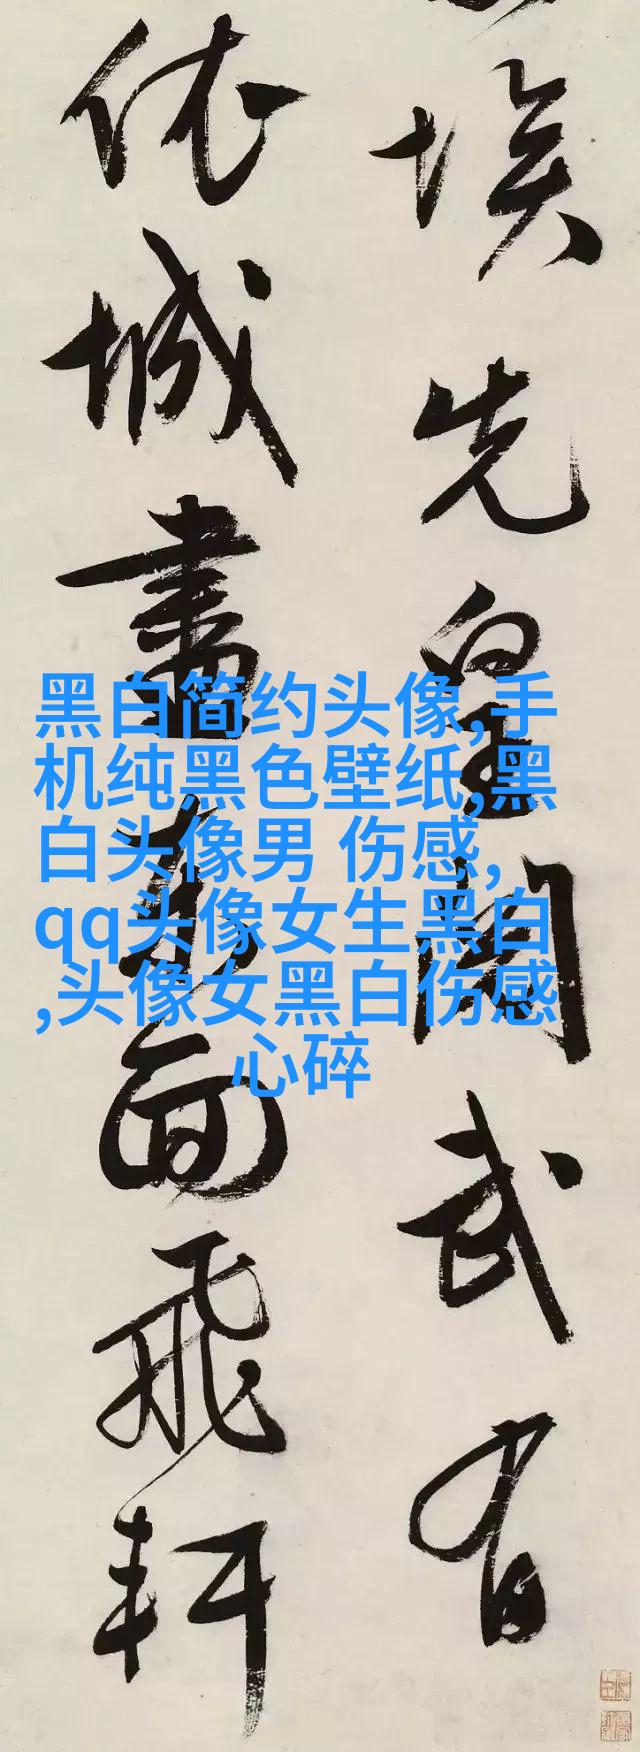 埃先皇閱武有
依城盡東面飛軒
黑白简约头像,手
机纯黑色壁纸,黑
白头像男 伤感,
qq头像女生黑白
,头像女黑白伤感
心碎